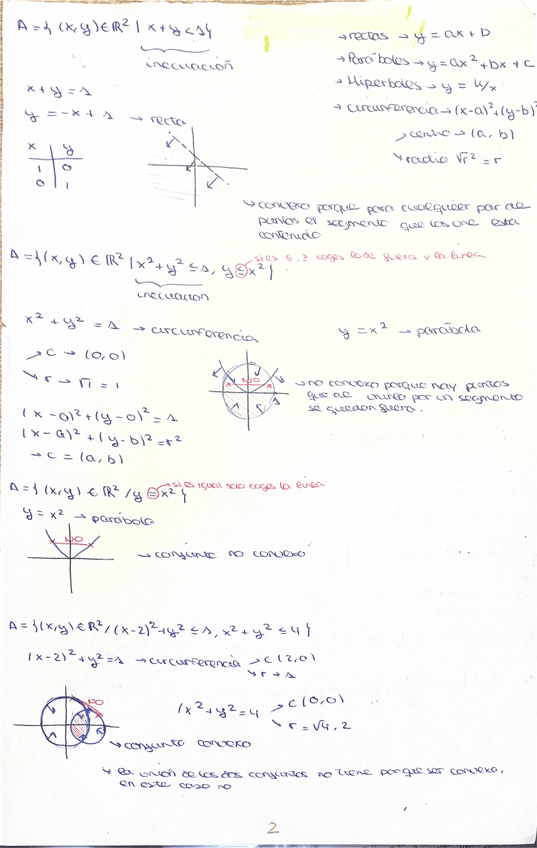 A = { (x,y) ∈ ℝ² | x+y < 1 }
inecuación
→ rectas → y = ax + b
→ Parábolas → y = ax² + bx + c
→ Hiperboles → y = k/x
→ circunferencia → (x-a)² + (y-b)²
→ centro → (a, b)
→ radio √r² = r
x + y = 1
y = -x + 1 → recta
x y
1 0
0 1
→ convexo porque para cualqueer par de
puntos el segmento que los une esta
contenido
A = { (x,y) ∈ ℝ² | x² + y² ≤ 1, y ≤ x² }
→ si es ≤, ≥ coges lo de fuera y la linea
inecuacion
x² + y² = 1 → circunferencia
y = x² → parábola
→ c → (0,0)
→ r → √1 = 1
NO
→ no convexo porque hay puntos
que al unirlo por un segmento
se quedan fuera.
(x-0)² + (y-0)² = 1
(x-a)² + (y-b)² = r²
→ c = (a, b)
A = { (x,y) ∈ ℝ² / y = x² }
→ si es igual solo coges la linea
y = x² → parábola
NO
→ conjunto no convexo
A = { (x,y) ∈ ℝ² / (x-2)² + y² ≤ 1, x² + y² ≤ 4 }
(x-2)² + y² = 1 → circunferencia → c (2,0)
→ r → 1
(x² + y² = 4 → c (0,0)
→ r = √4, 2
NO
→ conjunto convexo
→ La unión de los dos conjuntos no tiene porque ser convexo,
en este caso no
2